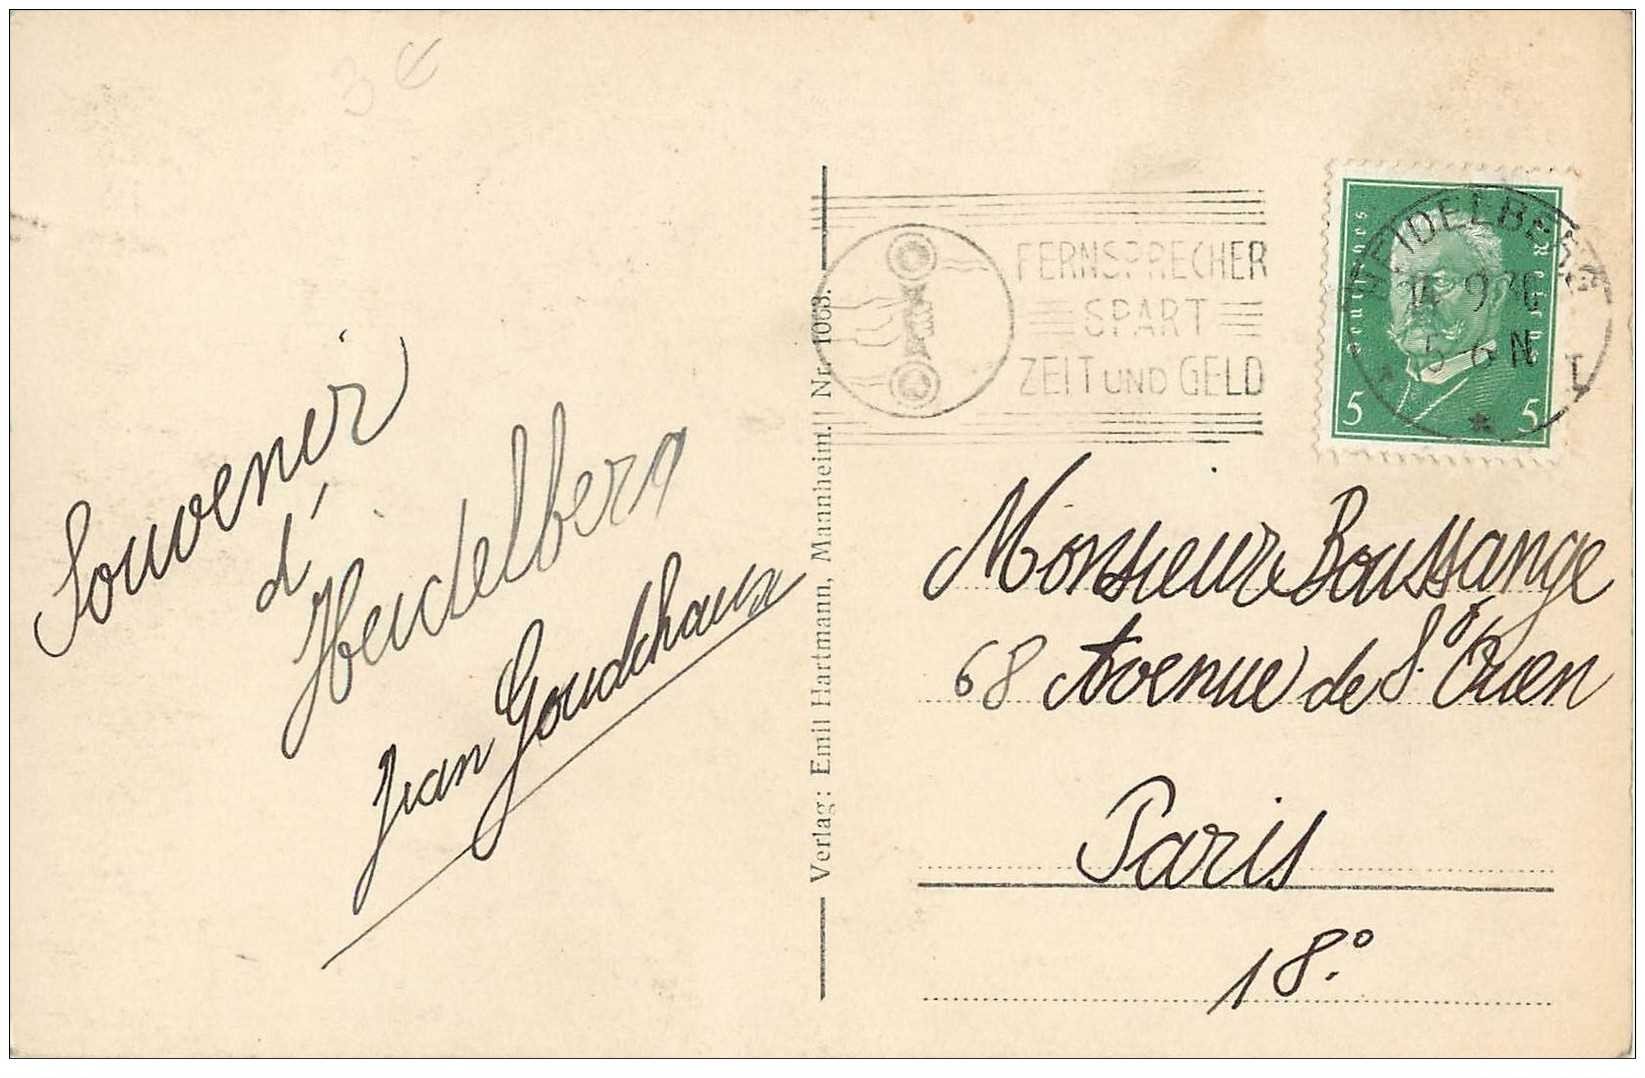 3 €
Souvenir
d'
Heidelberg
Jean Goudchaux
Verlag: Emil Hartmann, Mannheim. Nr. 1063.
FERNSPRECHER
SPART
ZEIT UND GELD
Deutsches Reich
5 5
HEIDELBERG
14 9 30
5-6 N
Monsieur Boussange
68 Avenue de St Ouen
Paris
18.e